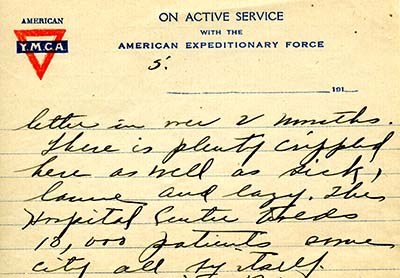 AMERICAN
Y.M.C.A.
ON ACTIVE SERVICE
WITH THE
AMERICAN EXPEDITIONARY FORCE
5.
191
letter in over 2 months.
There is plenty crippled
here as well as sick,
lame and lazy. This
Hospital Center holds
18,000 patients some
city all by itself.